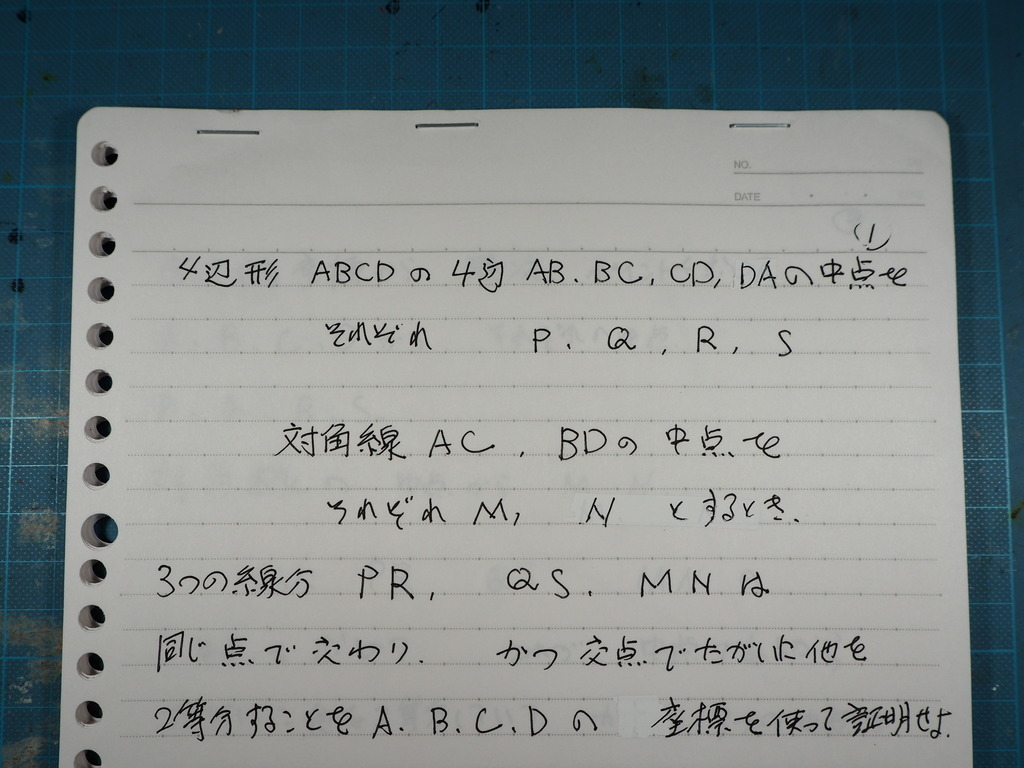 NO.
DATE
(1)
4辺形 ABCDの 4辺 AB. BC, CD, DAの中点を
それぞれ P. Q, R, S
対角線 AC, BDの 中点を
それぞれ M, N とするとき.
3つの線分 PR, QS. MNは
同じ点で交わり. かつ 交点でたがいに他を
2等分することを A. B. C. D の 座標を使って証明せよ.